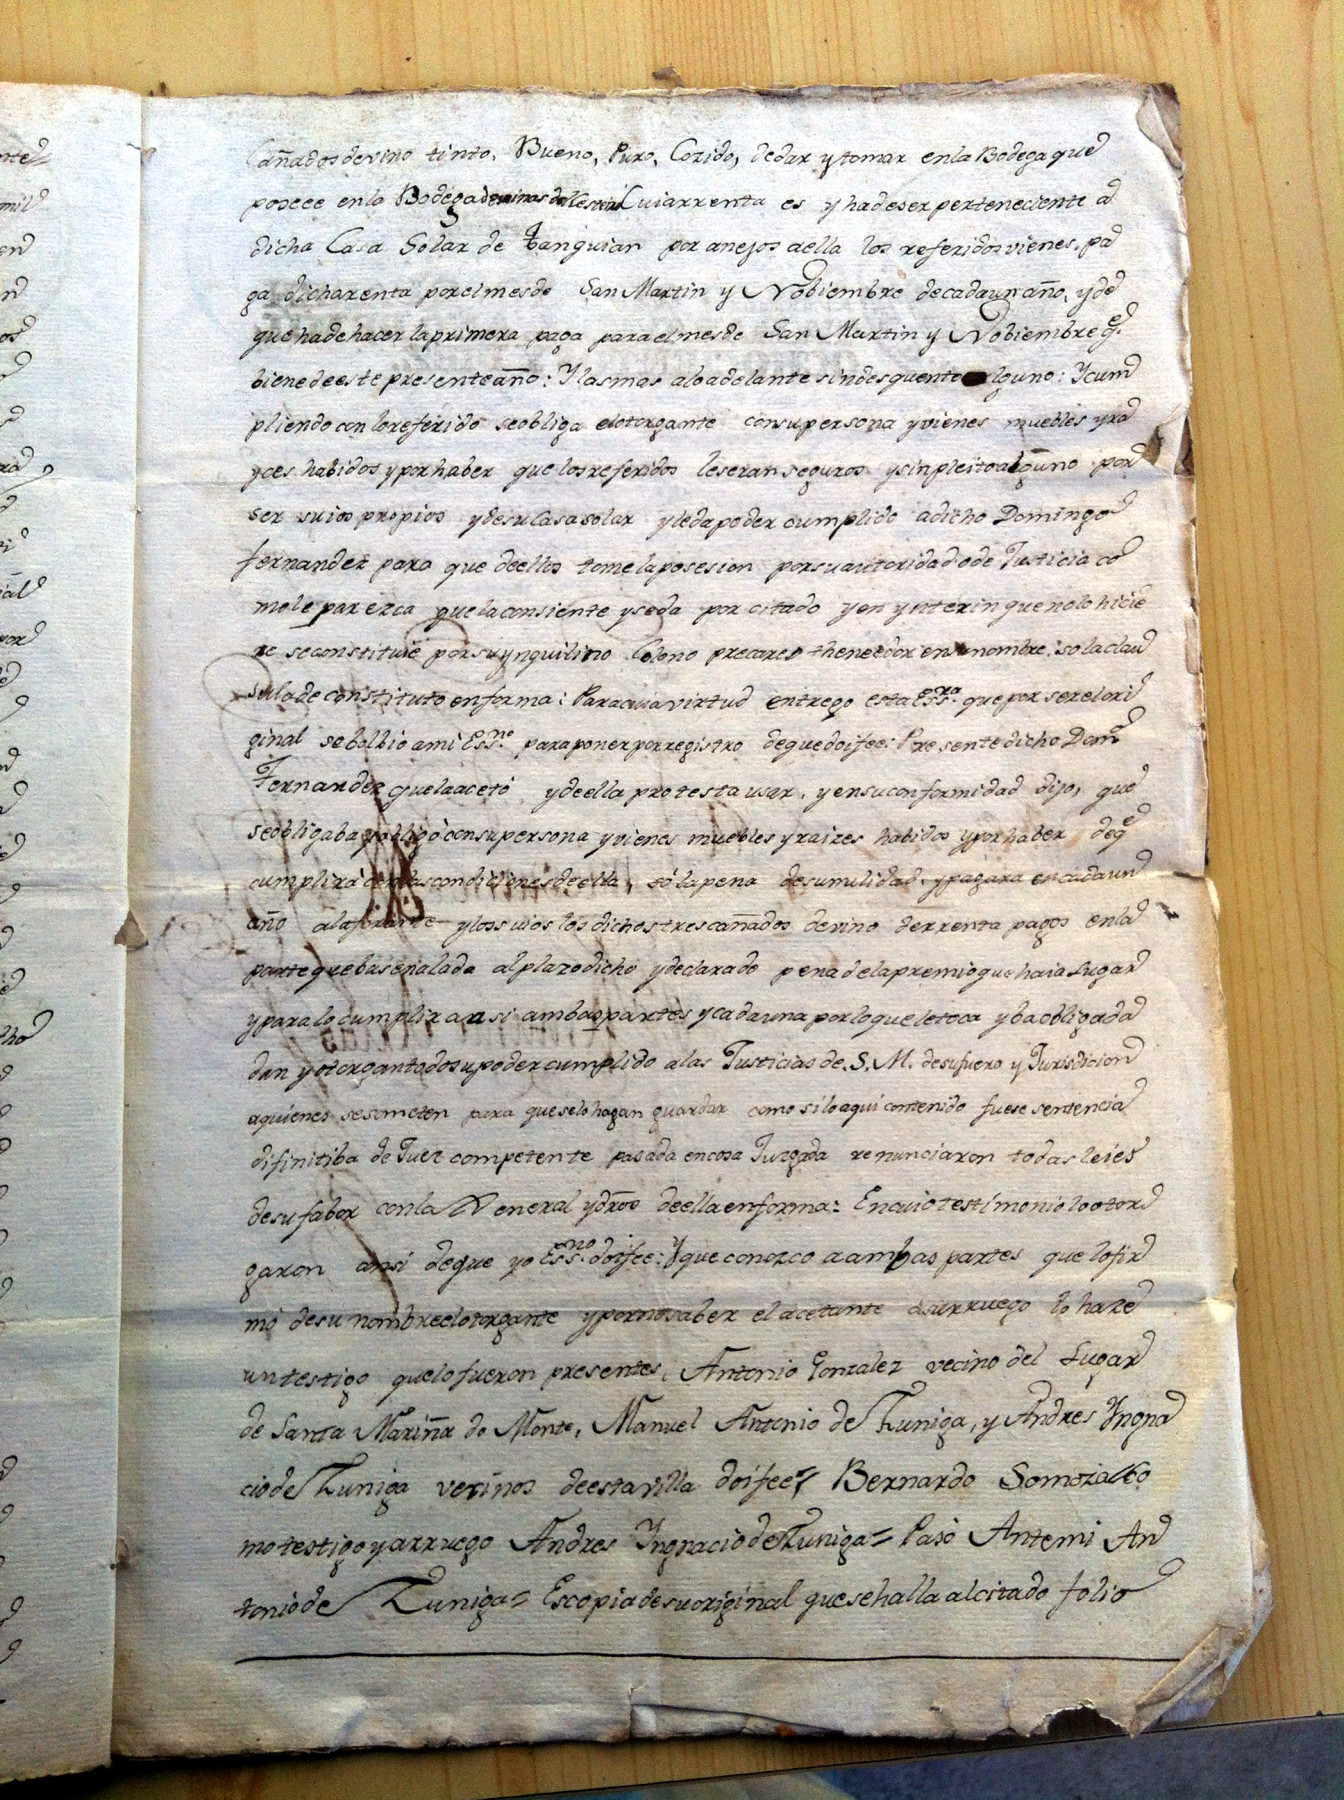 Cañados de vino tinto, Bueno, Puro, Cozido, de dar y tomar en la Bodega que
posee en la Bodega Cuia rrenta es y ha de ser perteneciente a
dicha Casa Solar de Tanguian por anejos a ella los referidos vienes, pa
ga dicha renta por el mes de San Martin y Nobiembre de cada un año, y de
que ha de hacer la primera paga para el mes de San Martin y Nobiembre qe.
biene de este presente año: Y las mas al o adelante sin desquento alguno: Y cum
pliendo con lo referido se obliga el otorgante con su persona y vienes muebles y ra
yces habidos y por haber que los referidos le seran seguros y sin pleito alguno por
ser suios propios y de su Casa solar y le da poder cumplido a dicho Domingo
fernandez para que de ellos tome la posesion por su autoridad o de Justicia co
mo le parezca que la consiente y se da por citado y en ynterin que no lo hicie
re se constituie por su ynquilino Colono precareo theneedor en su nombre, so la clau
sula de constituto en forma: Para cuia virtud entrego esta Essra. que por ser el ori
ginal se bolbio a mi Essno. para poner por registro de que doi fee: Presente dicho Domo
Fernandez que la acetó y de ella protesta usar, y en su conformidad dijo, que
se obligaba y obligó con su persona y vienes muebles y raizes habidos y por haber de qe
cumplirá con las condiciones de ella, só la pena de su nulidad, y pagara en cada un
año a la forante y los suios los dichos tres cañados de vino de rrenta pagos en la
parte que ba señalada al plazo dicho y declarado pena del apremio que haia Lugar
y para lo cumplir a asi ambas partes y cada una por lo que le toca y ba obligada
dan y otorgan todo su poder cumplido a las Justicias de S. M. de su fuero y Jurisdicion
a quienes se someten para que se lo hagan guardar como si lo aqui contenido fuese sentencia
difinitiba de Juez competente pasada en cosa Juzgada renunciaron todas leies
de su fabor con la General y dros de ella en forma: En cuio testimonio lo otor
garon ansi de que yo Essno. doi fee: Y que conozco a ambas partes que lo fir
mó de su nombre el otorgante y por no saber el acetante a su rruego lo haze
un testigo que lo fueron presentes, Antonio Gonzalez vecino del Lugar
de Santa Mariña do Monte, Manuel Antonio de Zuniga, y Andrés Ygna
cio de Zuniga vezinos de esta villa doi fee = Bernardo Somoza = Co
mo testigo y a rruego Andres Ygnacio de Zuniga = Pasó Antemi An
tonio de Zuniga = Es copia de su original que se halla al citado folio